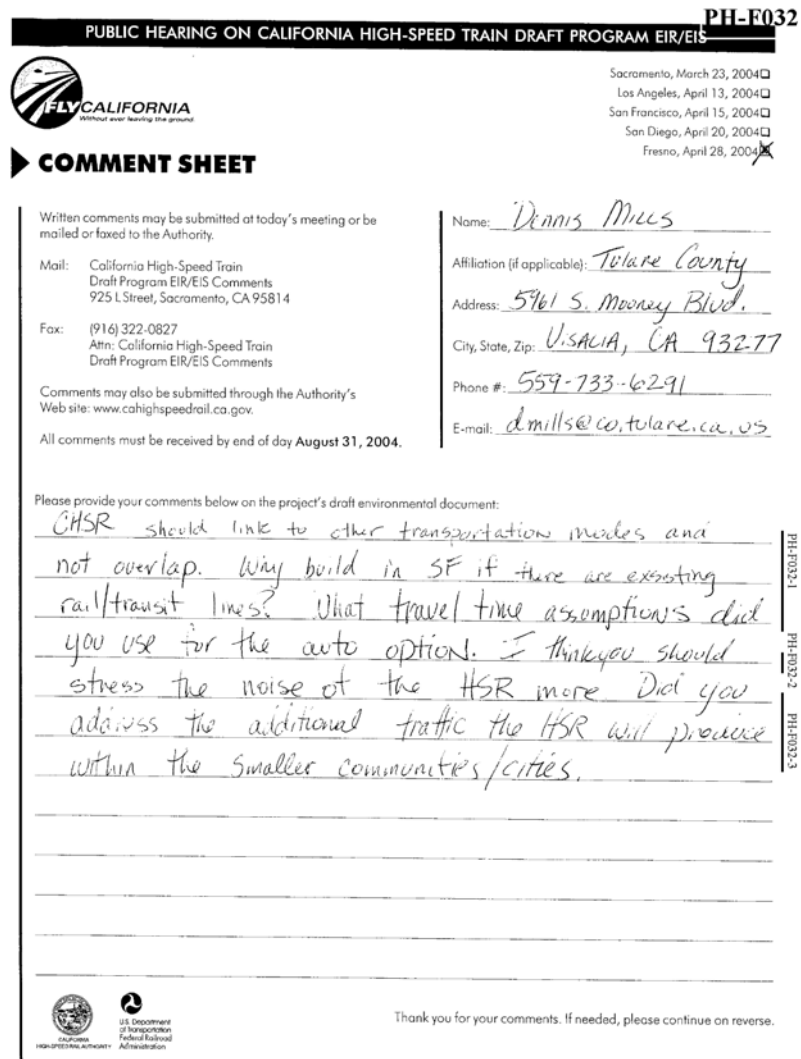 PH-F032
PUBLIC HEARING ON CALIFORNIA HIGH-SPEED TRAIN DRAFT PROGRAM EIR/EIS
FLY CALIFORNIA
Without ever leaving the ground.
Sacramento, March 23, 2004
Los Angeles, April 13, 2004
San Francisco, April 15, 2004
San Diego, April 20, 2004
Fresno, April 28, 2004
COMMENT SHEET
Written comments may be submitted at today's meeting or be
mailed or faxed to the Authority.
Mail: California High-Speed Train
Draft Program EIR/EIS Comments
925 L Street, Sacramento, CA 95814
Fax: (916) 322-0827
Attn: California High-Speed Train
Draft Program EIR/EIS Comments
Comments may also be submitted through the Authority's
Web site: www.cahighspeedrail.ca.gov.
All comments must be received by end of day August 31, 2004.
Name: Dennis Mills
Affiliation (if applicable): Tulare County
Address: 5961 S. Mooney Blvd.
City, State, Zip: Visalia, CA 93277
Phone #: 559-733-6291
E-mail: dmills@co.tulare.ca.us
Please provide your comments below on the project's draft environmental document:
CHSR should link to other transportation modes and
not overlap. Why build in SF if there are exsisting
rail/transit lines? What travel time assumptions did
you use for the auto option. I think you should
stress the noise of the HSR more Did you
address the additional traffic the HSR will produce
within the smaller communities/cities.
PH-F032-1
PH-F032-2
PH-F032-3
CALIFORNIA
HIGH-SPEED RAIL AUTHORITY
U.S. Department
of Transportation
Federal Railroad
Administration
Thank you for your comments. If needed, please continue on reverse.